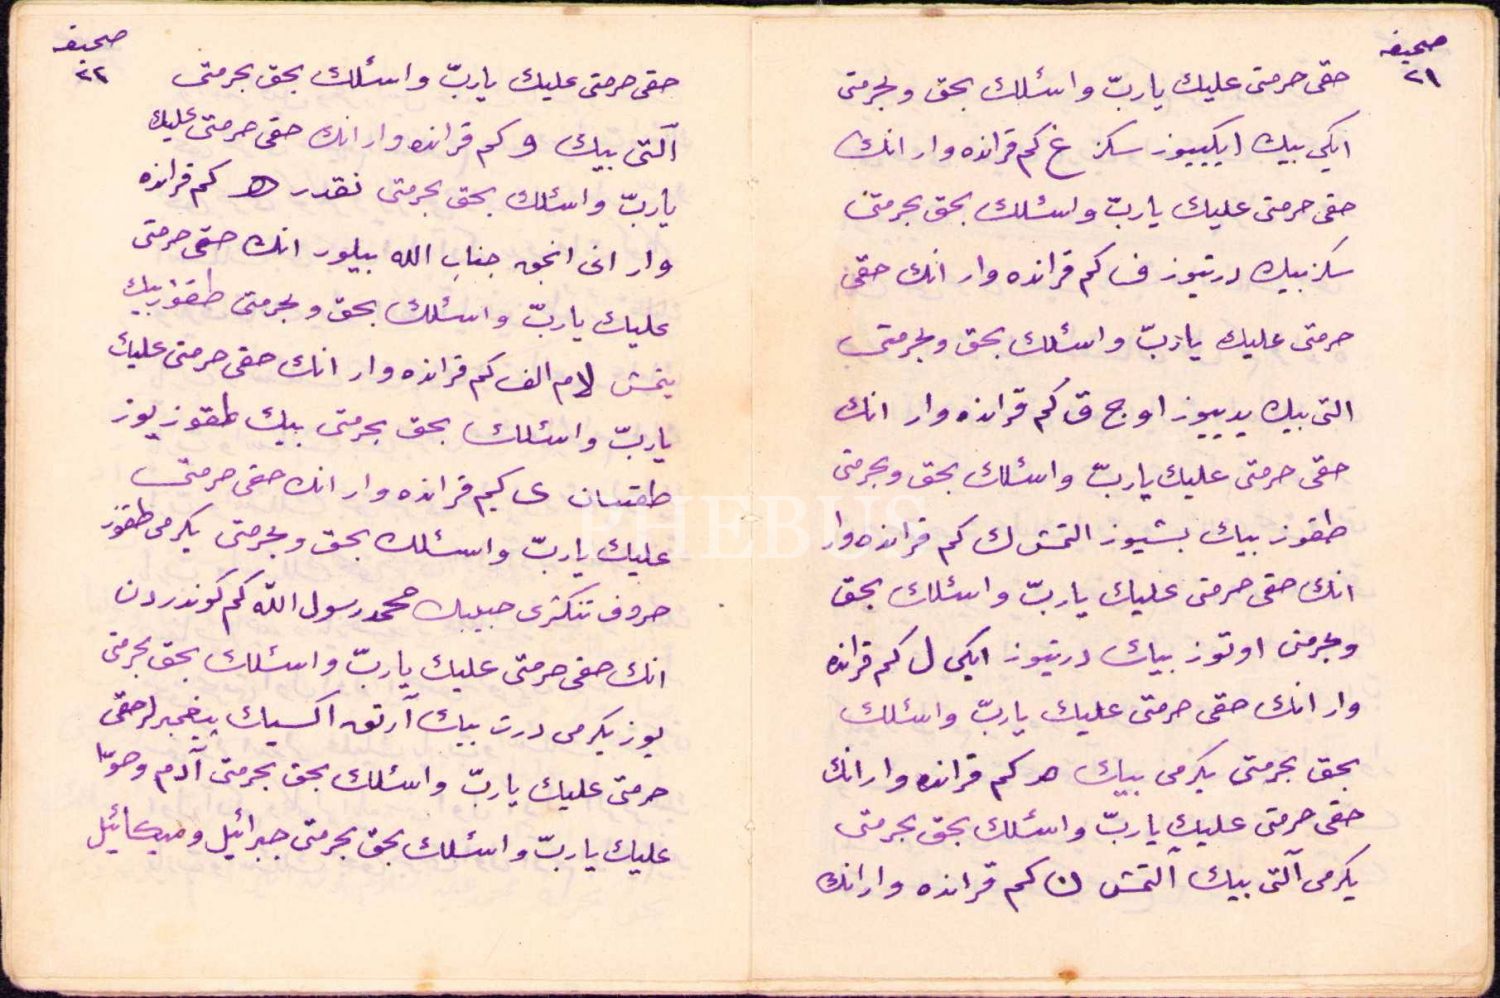 صحيفه
٢١
حقى حرمتى عليك ياربّ واسئلك بحق وبحرمتى
ايكى بيك ايكييوز سكز غ كم قرانده وار انك
حقى حرمتى عليك ياربّ واسئلك بحق بحرمتى
سكز بيك درتيوز ف كم قرانده وار انك حقى
حرمتى عليك ياربّ واسئلك بحق وبحرمتى
التى بيك يدييوز اوج ق كم قرانده وار انك
حقى حرمتى عليك ياربّ واسئلك بحق وبحرمتى
طقوز بيك بشيوز التمش ك كم قرانده وار
انك حقى حرمتى عليك ياربّ واسئلك بحق
وبحرمتى اوتوز بيك درتيوز ايكى ل كم قرانده
وار انك حقى حرمتى عليك ياربّ واسئلك
بحق بحرمتى يكرمى بيك م كم قرانده وار انك
حقى حرمتى عليك ياربّ واسئلك بحق بحرمتى
يكرمى آلتى بيك آلتمش ن كم قرانده وار انك
صحيفه
٢٢
حقى حرمتى عليك ياربّ واسئلك بحق بحرمتى
آلتى بيك و كم قرانده وار انك حقى حرمتى عليك
ياربّ واسئلك بحق بحرمتى نقدر ه كم قرانده
وار انى انجق جناب الله بيلور انك حقى حرمتى
عليك ياربّ واسئلك بحق وبحرمتى طقوز بيك
يتمش لام الف كم قرانده وار انك حقى حرمتى عليك
ياربّ واسئلك بحق بحرمتى بيك طقوز يوز
طقسان ى كم قرانده وار انك حقى حرمتى
عليك ياربّ واسئلك بحق وبحرمتى يكرمى طقوز
حروف تنكرى حبيبك محمد رسول الله كم كوندردن
انك حقى حرمتى عليك ياربّ واسئلك بحق بحرمتى
يوز يكرمى درت بيك آرتق اكسيك پيغمبرلر حقى
حرمتى عليك ياربّ واسئلك بحق بحرمتى آدم وحوّا
عليك ياربّ واسئلك بحق بحرمتى جبرائيل وميكائيل
PHEBUS